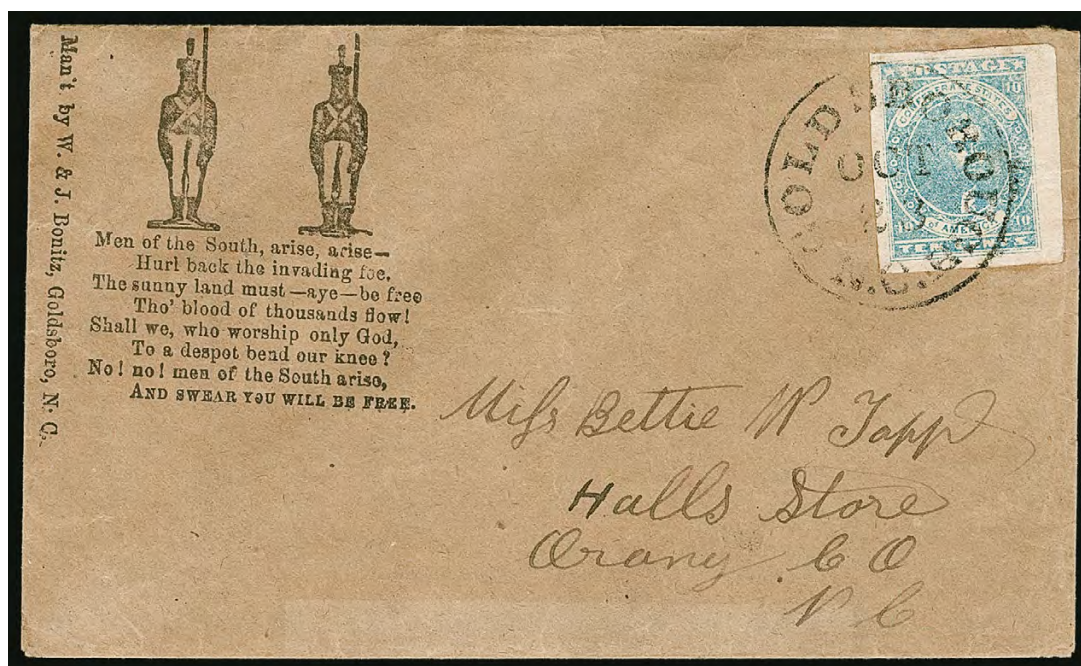 Man't by W. & J. Bonitz, Goldsboro, N. C.
Men of the South, arise, arise—
Hurl back the invading foe,
The sunny land must—aye—be free
Tho' blood of thousands flow!
Shall we, who worship only God,
To a despot bend our knee?
No! no! men of the South arise,
AND SWEAR YOU WILL BE FREE.
GOLDSBOROUGH
OCT
N.C.
POSTAGE
10 10
CONFEDERATE STATES
OF AMERICA
10 10
TEN CENTS
Miss Bettie W Tapp
Halls Store
Orang CO
N C